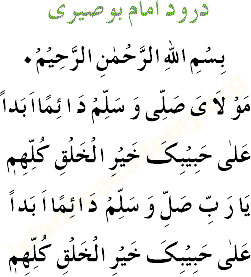 درود امام بوصیری
بِسْمِ اللهِ الرَّحْمٰنِ الرَّحِيْمِ۝
مَوْ لَا یَ صَلِّی وَ سَلِّمْ دَ ائِمًا اَ بَداً
عَلٰی حَبِیْبِکَ خَیْرِ الْخَلْقِ کُلِّهِمِ
یَا رَ بِّ صَلِّ وَ سَلِّمْ دَ ائِمًا اَ بَداً
عَلٰی حَبِیْبِکَ خَیْرِ الْخَلْقِ کُلِّهِمِ